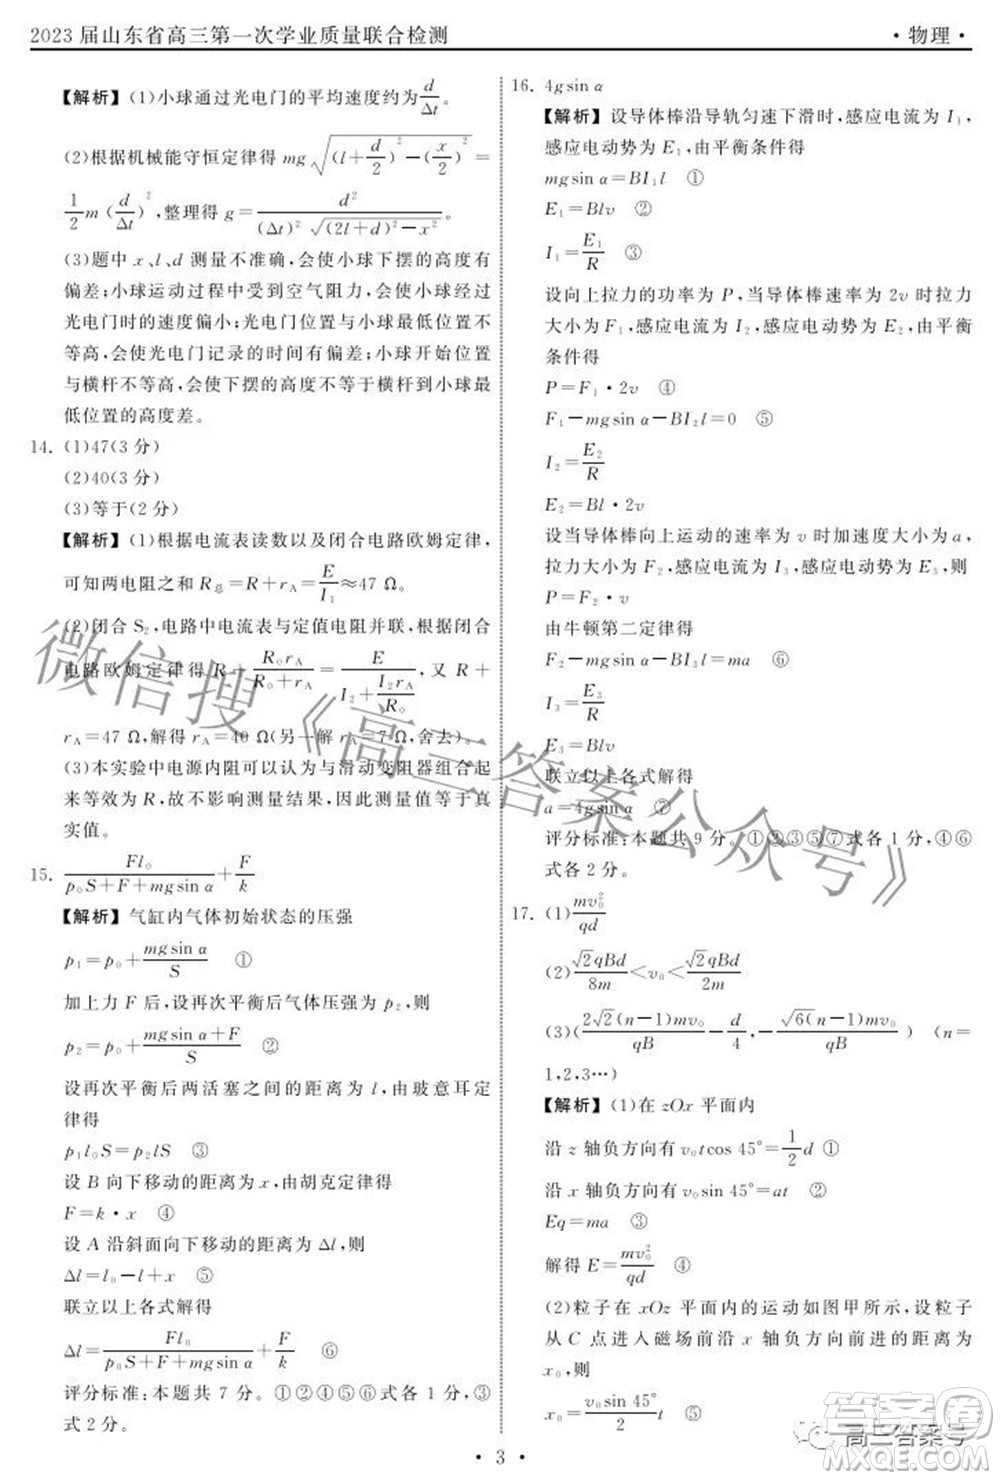 2023 届山东省高三第一次学业质量联合检测
·物理·
【解析】(1)小球通过光电门的平均速度约为 d/Δt。
(2)根据机械能守恒定律得 mg√((l+d/2)²-(x/2)²)=
1/2 m(d/Δt)²,整理得 g=d²/((Δt)²√((2l+d)²-x²))。
(3)题中 x、l、d 测量不准确,会使小球下摆的高度有
偏差;小球运动过程中受到空气阻力,会使小球经过
光电门时的速度偏小;光电门位置与小球最低位置不
等高,会使光电门记录的时间有偏差;小球开始位置
与横杆不等高,会使下摆的高度不等于横杆到小球最
低位置的高度差。
14. (1)47(3 分)
(2)40(3 分)
(3)等于(2 分)
【解析】(1)根据电流表读数以及闭合电路欧姆定律,
可知两电阻之和 R总=R+rA=E/I₁≈47 Ω。
(2)闭合 S₂,电路中电流表与定值电阻并联,根据闭合
电路欧姆定律得 R+R₀rA/(R₀+rA)=E/(I₂+I₂rA/R₀),又 R+
rA=47 Ω,解得 rA=40 Ω(另一解 rA=7 Ω,舍去)。
(3)本实验中电源内阻可以认为与滑动变阻器组合起
来等效为 R,故不影响测量结果,因此测量值等于真
实值。
15. Fl₀/(p₀S+F+mgsin α)+F/k
【解析】气缸内气体初始状态的压强
p₁=p₀+mgsin α/S ①
加上力 F 后,设再次平衡后气体压强为 p₂,则
p₂=p₀+(mgsin α+F)/S ②
设再次平衡后两活塞之间的距离为 l,由玻意耳定
律得
p₁l₀S=p₂lS ③
设 B 向下移动的距离为 x,由胡克定律得
F=k·x ④
设 A 沿斜面向下移动的距离为 Δl,则
Δl=l₀-l+x ⑤
联立以上各式解得
Δl=Fl₀/(p₀S+F+mgsin α)+F/k ⑥
评分标准:本题共 7 分。①②④⑤⑥式各 1 分,③
式 2 分。
16. 4gsin α
【解析】设导体棒沿导轨匀速下滑时,感应电流为 I₁,
感应电动势为 E₁,由平衡条件得
mgsin α=BI₁l ①
E₁=Blv ②
I₁=E₁/R ③
设向上拉力的功率为 P,当导体棒速率为 2v 时拉力
大小为 F₁,感应电流为 I₂,感应电动势为 E₂,由平衡
条件得
P=F₁·2v ④
F₁-mgsin α-BI₂l=0 ⑤
I₂=E₂/R
E₂=Bl·2v
设当导体棒向上运动的速率为 v 时加速度大小为 a,
拉力大小为 F₂,感应电流为 I₃,感应电动势为 E₃,则
P=F₂·v
由牛顿第二定律得
F₂-mgsin α-BI₃l=ma ⑥
I₃=E₃/R
E₃=Blv
联立以上各式解得
a=4gsin α ⑦
评分标准:本题共 9 分。①②③⑤⑦式各 1 分,④⑥
式各 2 分。
17. (1)mv₀²/qd
(2)√2qBd/8m<v₀<√2qBd/2m
(3)(2√2(n-1)mv₀/qB-d/4,-√6(n-1)mv₀/qB) (n=
1,2,3…)
【解析】(1)在 zOx 平面内
沿 z 轴负方向有 v₀tcos 45°=1/2 d ①
沿 x 轴负方向有 v₀sin 45°=at ②
Eq=ma ③
解得 E=mv₀²/qd ④
(2)粒子在 xOz 平面内的运动如图甲所示,设粒子
从 C 点进入磁场前沿 x 轴负方向前进的距离为
x₀,则
x₀=v₀sin 45°/2 t
· 3 ·
微信搜《高三答案公众号》
高三答案号
答案圈
MXQE.COM